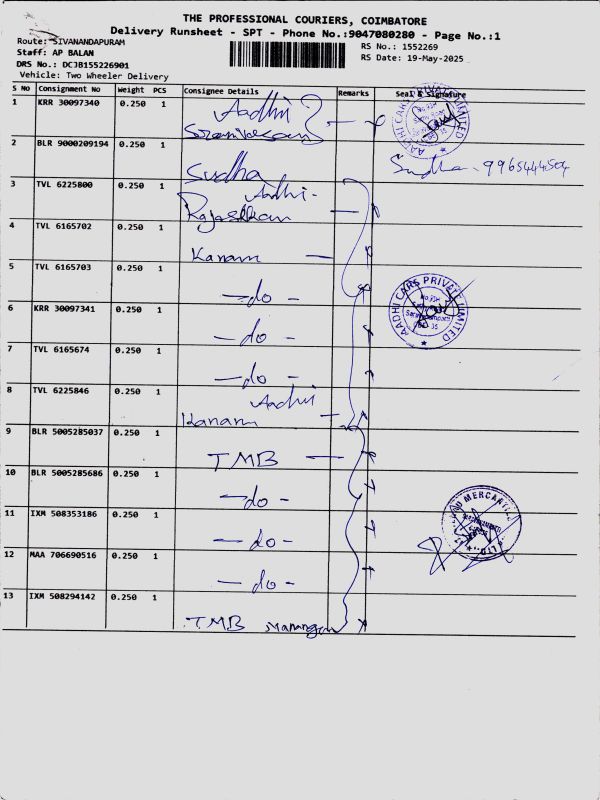 THE PROFESSIONAL COURIERS, COIMBATORE
Delivery Runsheet - SPT - Phone No.:9047080280 - Page No.:1
Route: SIVANANDAPURAM
RS No.: 1552269
Staff: AP BALAN
RS Date: 19-May-2025
DRS No.: DCJB155226901
Vehicle: Two Wheeler Delivery
S No Consignment No Weight PCS Consignee Details Remarks Seal & Signature
1 KRR 30097340 0.250 1 Aadhi
AADHI CARS PRIVATE LIMITED
2 BLR 9000209194 0.250 1 Sudha Sudha - 9965444504
3 TVL 6225800 0.250 1 Aadhi -
4 TVL 6165702 0.250 1 Kanam
5 TVL 6165703 0.250 1 - do -
AADHI CARS PRIVATE LIMITED
6 KRR 30097341 0.250 1 - do -
7 TVL 6165674 0.250 1 - do -
8 TVL 6225846 0.250 1 Aadhi
Kanam
9 BLR 5005285037 0.250 1 TMB
10 BLR 5005285686 0.250 1 - do -
11 IXM 508353186 0.250 1 - do -
12 MAA 706690516 0.250 1 - do -
13 IXM 508294142 0.250 1 TMB